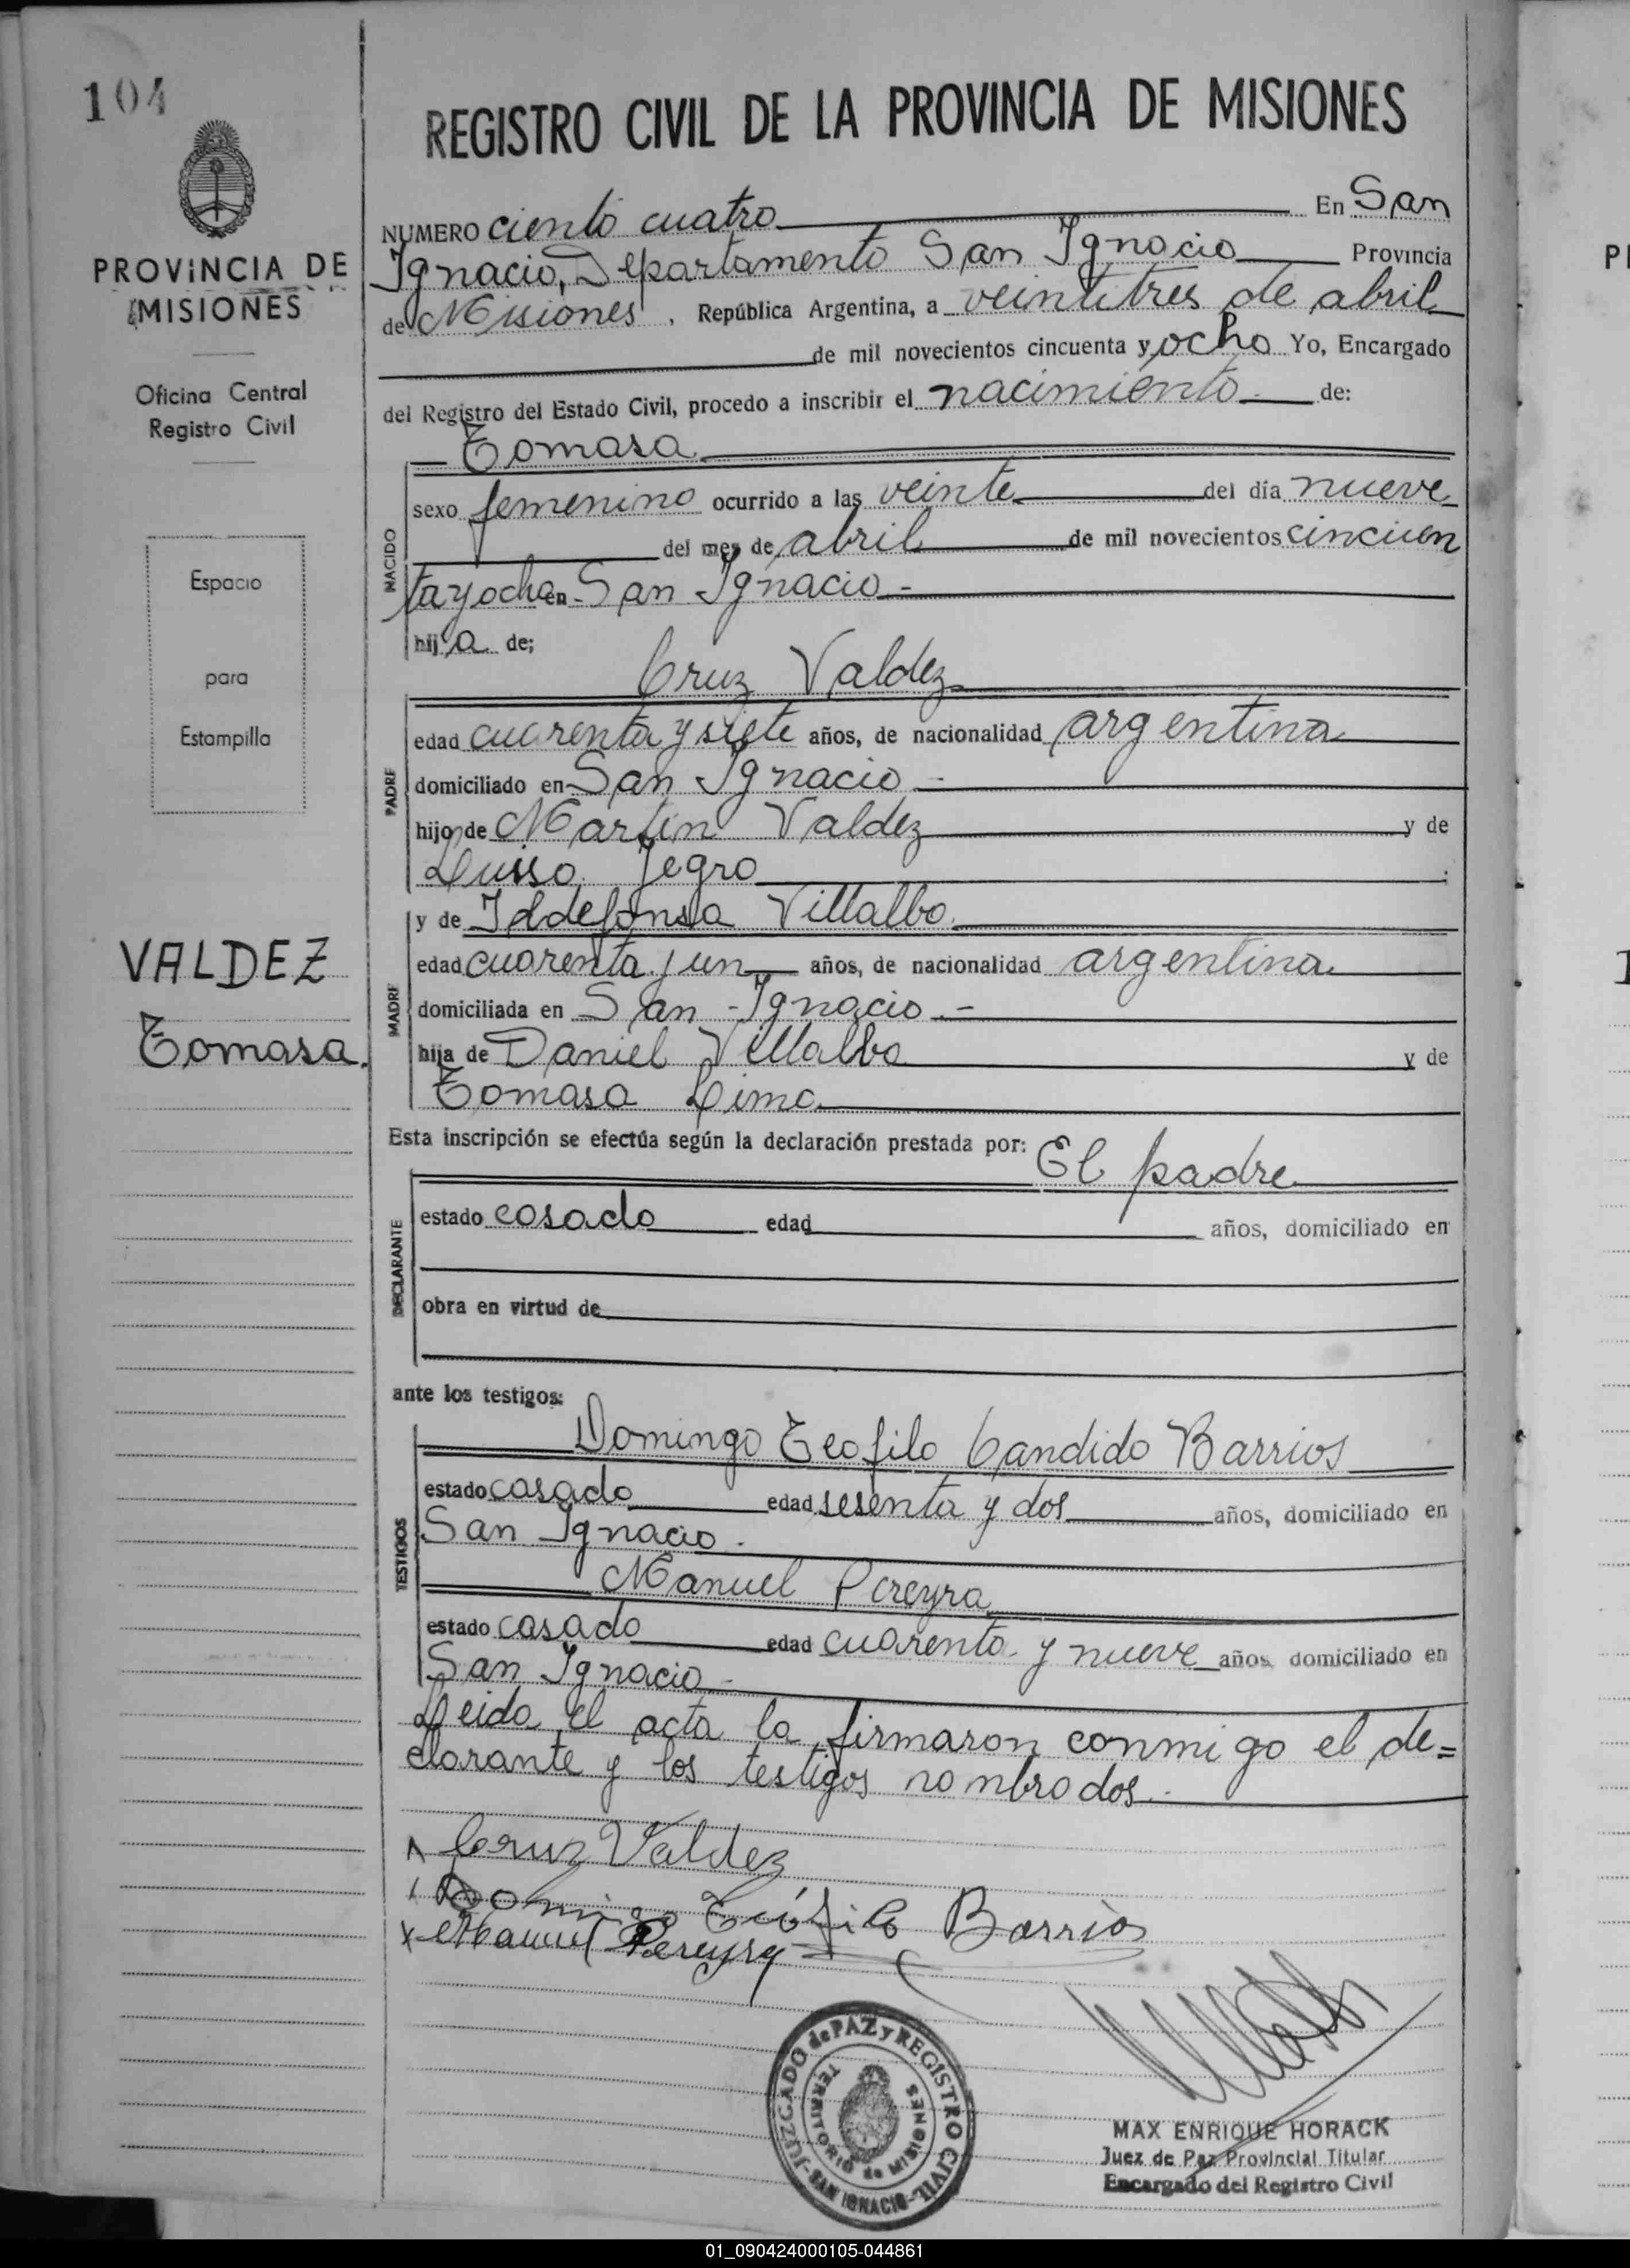 104
PROVINCIA DE
MISIONES
Oficina Central
Registro Civil
Espacio
para
Estampilla
VALDEZ
Tomasa.
REGISTRO CIVIL DE LA PROVINCIA DE MISIONES
NUMERO ciento cuatro En San
Ignacio, Departamento San Ignacio Provincia
de Misiones, República Argentina, a veintitres de abril
de mil novecientos cincuenta y ocho Yo, Encargado
del Registro del Estado Civil, procedo a inscribir el nacimiento de:
Tomasa
NACIDO
sexo femenino ocurrido a las veinte del día nueve
del mes de abril de mil novecientos cincuen
ta y ocho en San Ignacio
hija de;
Cruz Valdez
PADRE
edad cuarenta y siete años, de nacionalidad argentina
domiciliado en San Ignacio
hijo de Martin Valdez y de
Luisa
MADRE
y de Ildefonsa Villalba
edad cuarenta y un años, de nacionalidad argentina
domiciliada en San Ignacio.-
hija de Daniel Villalba y de
Tomasa Lima
Esta inscripción se efectúa según la declaración prestada por: El padre
DECLARANTE
estado casado edad años, domiciliado en
obra en virtud de
ante los testigos:
TESTIGOS
Domingo Teofilo Candido Barrios
estado casado edad sesenta y dos años, domiciliado en
San Ignacio.
Manuel Pereyra
estado casado edad cuarenta y nueve años domiciliado en
San Ignacio
Leida el acta la firmaron conmigo el de=
clarante y los testigos nombrados.
Cruz Valdez
Domingo Teófilo Barrios
Manuel Pereyra
JUZGADO de PAZ y REGISTRO CIVIL
TERRITORIO de MISIONES
SAN IGNACIO
MAX ENRIQUE HORACK
Juez de Paz Provincial Titular
Encargado del Registro Civil
01_090424000105-044861